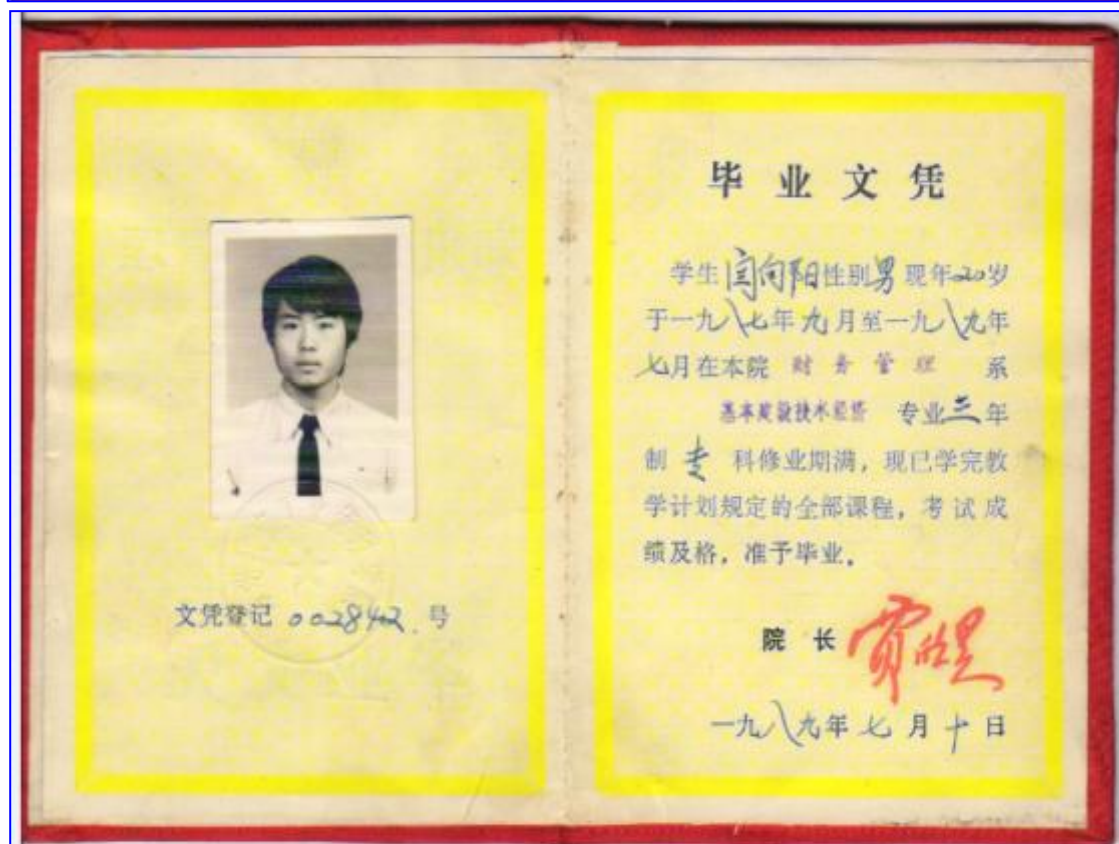 文凭登记 0028402 号
毕业文凭
学生闫向阳性别男现年20岁
于一九八七年九月至一九八九年
七月在本院 财务管理 系
基本建设技术经济 专业三年
制 专 科修业期满，现已学完教
学计划规定的全部课程，考试成
绩及格，准予毕业。
院 长
一九八九年七月十日